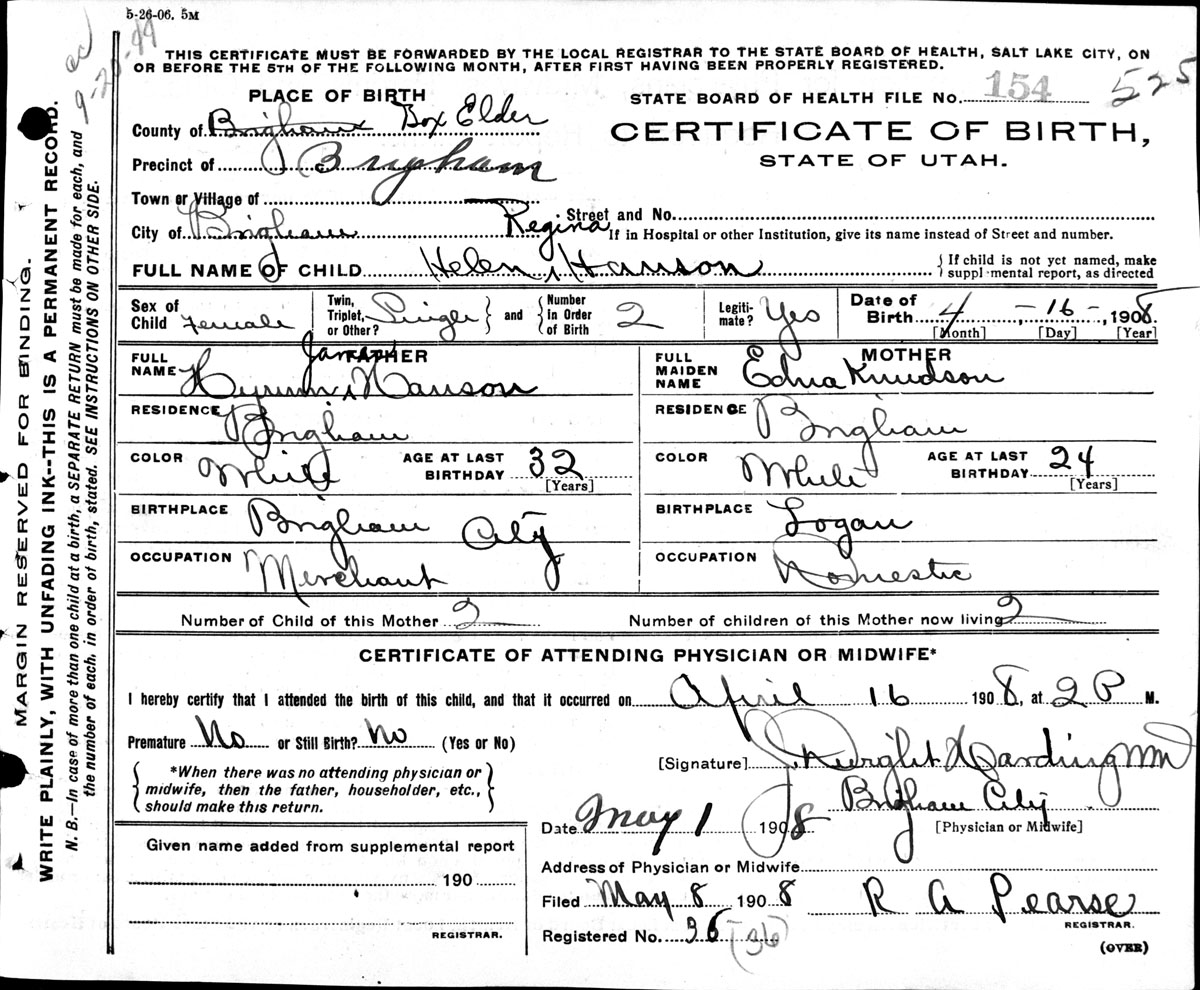 5-26-06. 5M
THIS CERTIFICATE MUST BE FORWARDED BY THE LOCAL REGISTRAR TO THE STATE BOARD OF HEALTH, SALT LAKE CITY, ON
OR BEFORE THE 5TH OF THE FOLLOWING MONTH, AFTER FIRST HAVING BEEN PROPERLY REGISTERED.
PLACE OF BIRTH
STATE BOARD OF HEALTH FILE No. 154 525
County of Brigham Box Elder
CERTIFICATE OF BIRTH,
STATE OF UTAH.
Precinct of Brigham
Town or Village of
Street and No.
City of Brigham
If in Hospital or other Institution, give its name instead of Street and number.
Regina
FULL NAME OF CHILD Helen Hanson
If child is not yet named, make
supplemental report, as directed
Sex of Child Female
Twin, Triplet, or Other? Single and Number In Order of Birth 2
Legiti-mate? Yes
Date of Birth 4 - 16 -, 1908
[Month] [Day] [Year]
FATHER
FULL NAME Hyrum James Hanson
RESIDENCE Brigham
COLOR White AGE AT LAST BIRTHDAY 32
[Years]
BIRTHPLACE Brigham City
OCCUPATION Merchant
MOTHER
FULL MAIDEN NAME Edna Knudson
RESIDENCE Brigham
COLOR White AGE AT LAST BIRTHDAY 24
[Years]
BIRTHPLACE Logan
OCCUPATION Domestic
Number of Child of this Mother 2 Number of children of this Mother now living 2
CERTIFICATE OF ATTENDING PHYSICIAN OR MIDWIFE*
I hereby certify that I attended the birth of this child, and that it occurred on April 16 1908, at 2 P M.
Premature No or Still Birth? No (Yes or No)
*When there was no attending physician or
midwife, then the father, householder, etc.,
should make this return.
[Signature] Dwight Harding MD
Brigham City
Date May 1 1908 [Physician or Midwife]
Address of Physician or Midwife
Given name added from supplemental report
190
REGISTRAR.
Filed May 8 1908 R A Pearse
REGISTRAR.
Registered No. 36 (36)
(OVER)
MARGIN RESERVED FOR BINDING.
WRITE PLAINLY, WITH UNFADING INK--THIS IS A PERMANENT RECORD.
N. B.—In case of more than one child at a birth, a SEPARATE RETURN must be made for each, and
the number of each, in order of birth, stated. SEE INSTRUCTIONS ON OTHER SIDE.